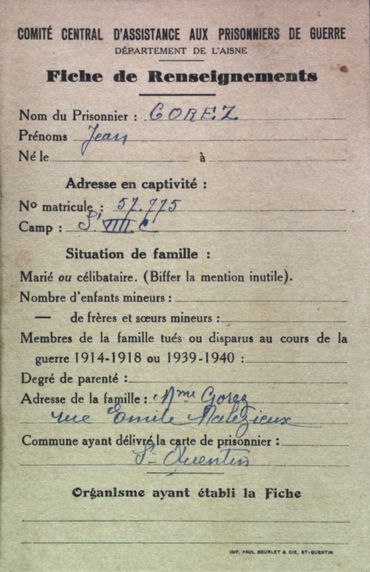 COMITÉ CENTRAL D'ASSISTANCE AUX PRISONNIERS DE GUERRE
DÉPARTEMENT DE L'AISNE
Fiche de Renseignements
Nom du Prisonnier : GOREZ
Prénoms Jean
Né le à
Adresse en captivité :
No matricule : 57.775
Camp : St VIII C
Situation de famille :
Marié ou célibataire. (Biffer la mention inutile).
Nombre d'enfants mineurs :
— de frères et sœurs mineurs :
Membres de la famille tués ou disparus au cours de la
guerre 1914-1918 ou 1939-1940 :
Degré de parenté :
Adresse de la famille : Mme Gorez
rue Emile Malézieux
Commune ayant délivré la carte de prisonnier :
St-Quentin
Organisme ayant établi la Fiche
IMP. PAUL BEURLET & CIE, ST-QUENTIN